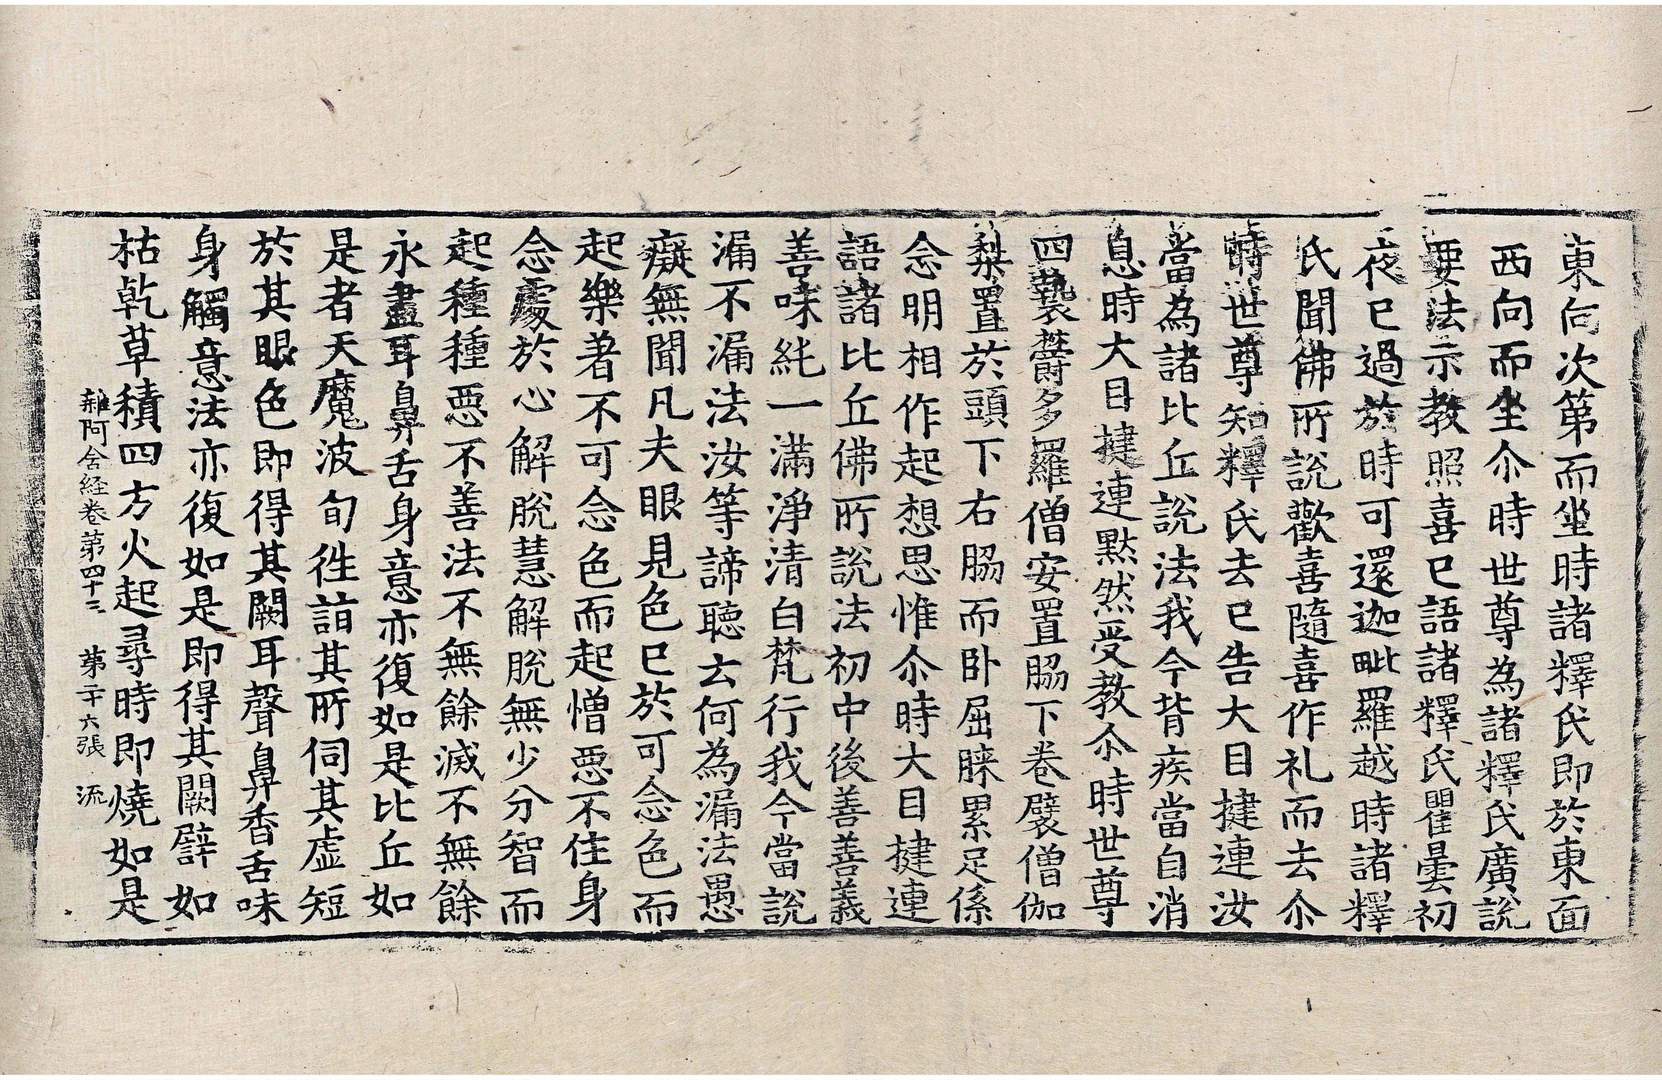 東向次第而坐時諸釋氏即於東面
西向而坐尒時世尊為諸釋氏廣說
要法示教照喜已語諸釋氏瞿曇初
夜已過於時可還迦毗羅越時諸釋
氏聞佛所說歡喜隨喜作礼而去尒
時世尊知釋氏去已告大目揵連汝
當為諸比丘說法我今背疾當自消
息時大目揵連默然受教尒時世尊
四褻欝多羅僧安置脇下卷襞僧伽
梨置於頭下右脇而卧屈膝累足係
念明相作起想思惟尒時大目揵連
語諸比丘佛所說法初中後善善義
善味純一滿淨清白梵行我今當說
漏不漏法汝等諦聽云何為漏法愚
癡無聞凡夫眼見色已於可念色而
起樂著不可念色而起憎惡不住身
念處於心解脫慧解脫無少分智而
起種種惡不善法不無餘滅不無餘
永盡耳鼻舌身意亦復如是比丘如
是者天魔波旬徃詣其所伺其虛短
於其眼色即得其闕耳聲鼻香舌味
身觸意法亦復如是即得其闕辟如
枯乾草積四方火起尋時即燒如是
雜阿含経卷第四十三 第二十六張 流